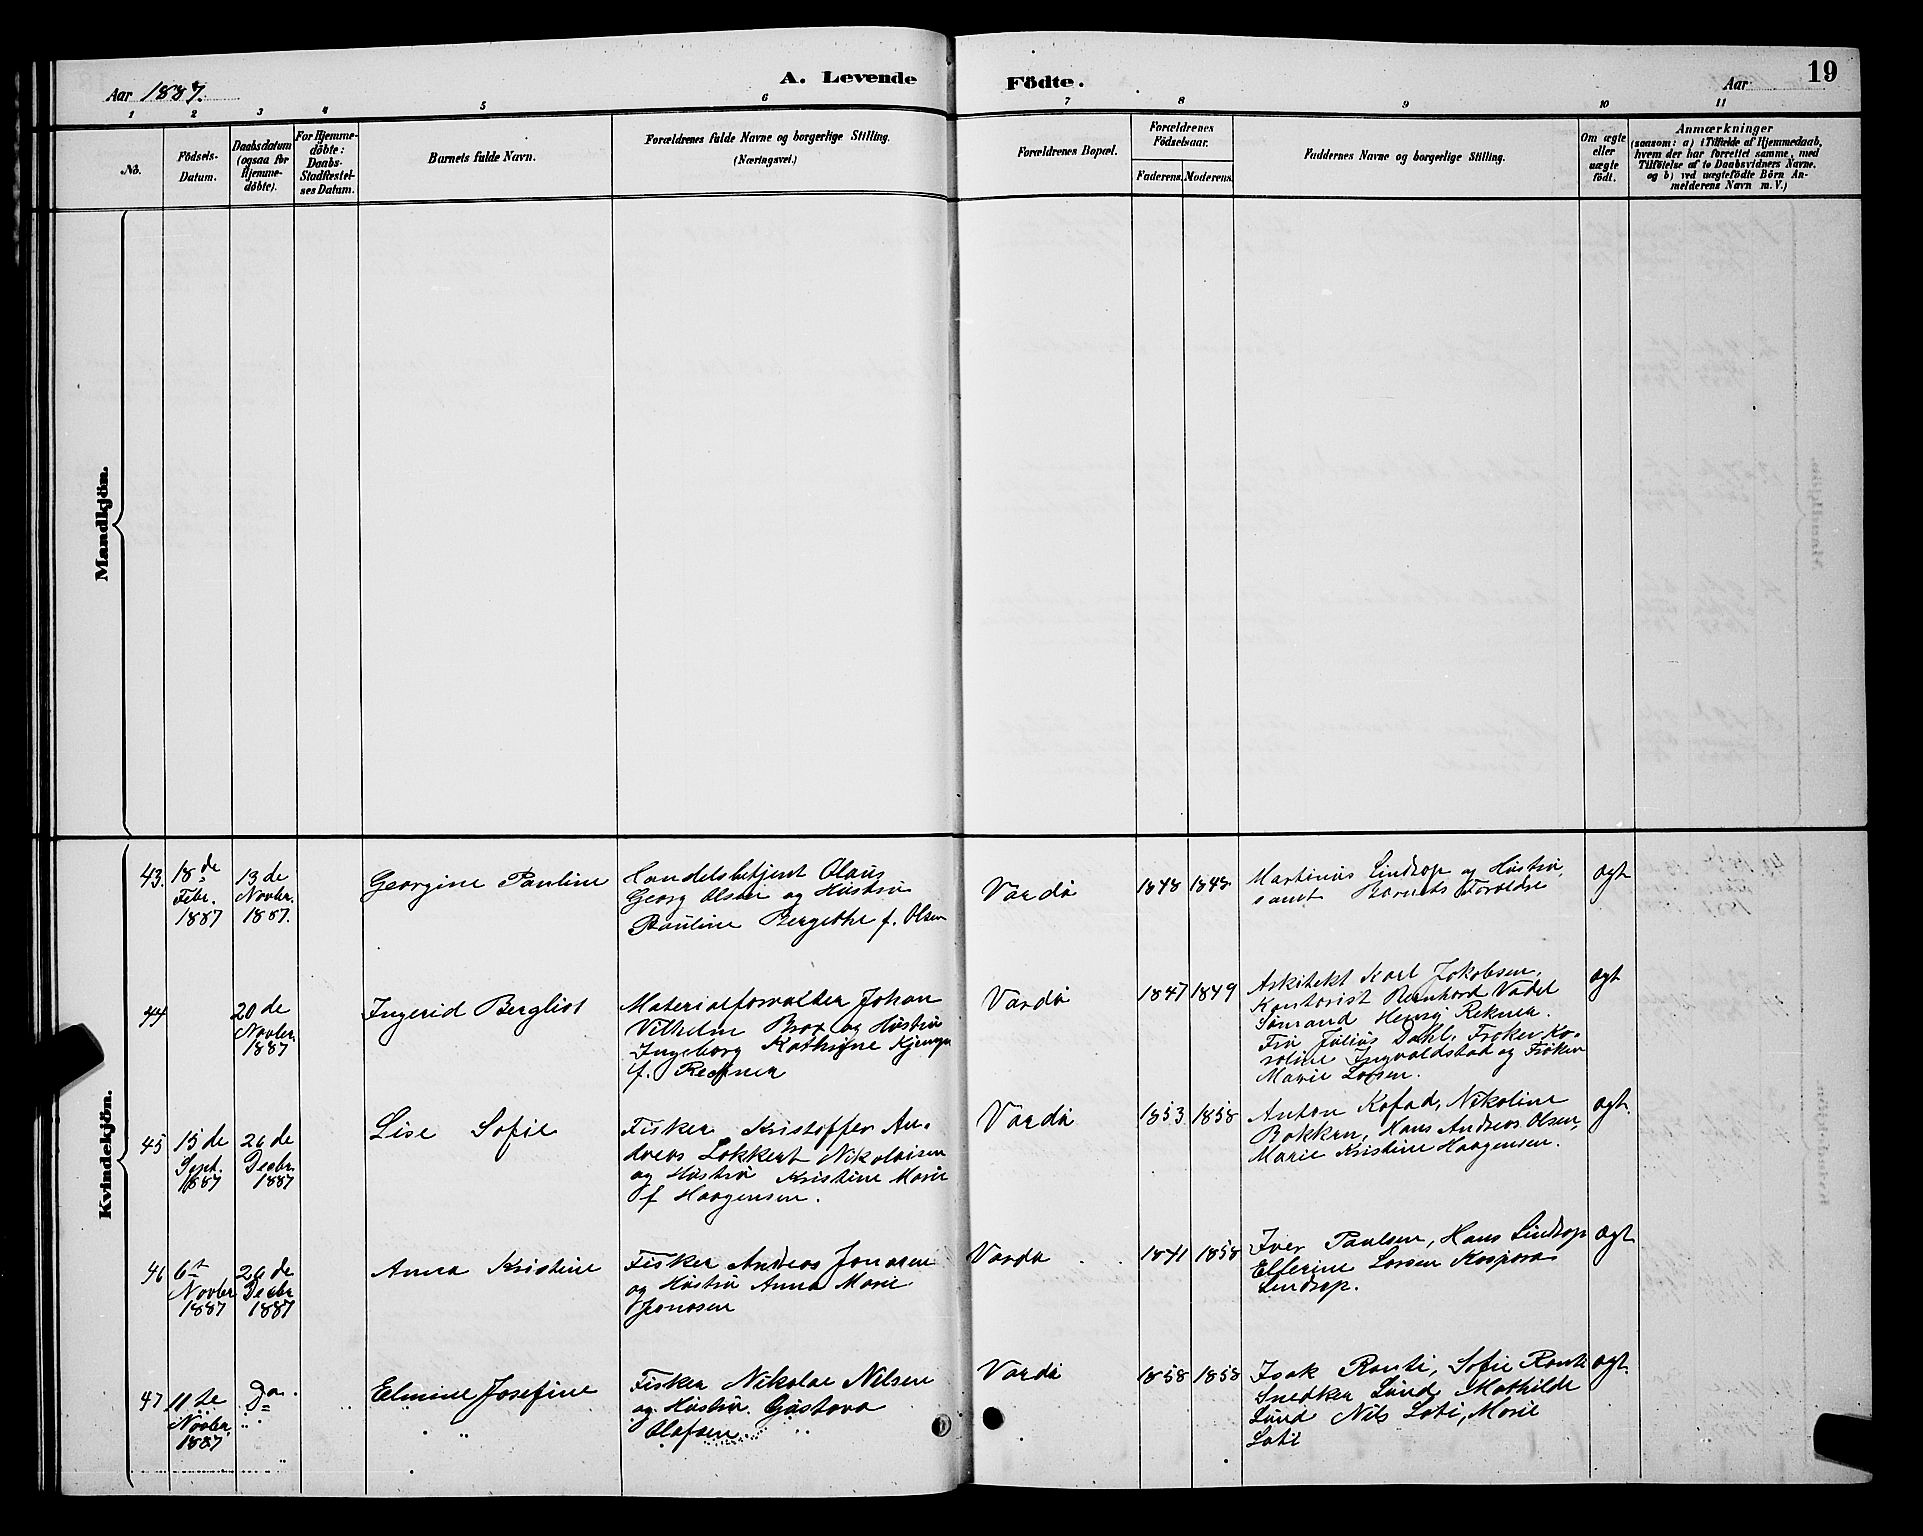 Aar 1887.
A. Levende
Födte.
Aar
19
1 2 3 4 5 6 7 8 9 10 11
No.
Födsels-
Datum.
Daabsdatum
(ogsaa for
Hjemme-
döbte).
For Hjemme-
döbte:
Daabs-
Stadfæstel-
ses Datum.
Barnets fulde Navn.
Forældrenes fulde Navne og borgerlige Stilling.
(Næringsvei.)
Forældrenes Bopæl.
Forældrenes
Födselsaar.
Faderens. Moderens.
Faddernes Navne og borgerlige Stilling.
Om ægte
eller
uægte
födt.
Anmærkninger
(saasom: a) i Tilfælde af Hjemmedaab,
hvem der har forrettet samme, med
Tilföielse af to Daabsvidners Navne,
og b) ved uægtefödte Börn An-
melderens Navn m. V.)
Mandkjön.
Kvindekjön.
43.
18de
Febr.
1887
13de
Novbr.
1887.
Georgine Pauline
Handelsbetjent Olaus
Georg Olsen og Hustru
Pauline Bergethe f. Olsen
Vardö
1848 1848
Martinus Lindrop og Hustru
samt Barnets Foreldre
ægt
44
20de
Novbr.
1887
Ingerid Bergliot
Materialforvalter Johan
Vilhelm Brox og Hustru
Ingeborg Kathrine
f.
Vardö
1847 1849
Arkitekt Karl Jakobsen,
Kontorist Bernhard Vadel
Sömand Henry
Fru Julius Dahl, Fröken Ka-
roline Ingvaldstad og Fröken
Marie Larsen.
ægt
45
15de
Sept.
1887
26de
Decbr.
1887
Lise Sofie
Fisker Kristoffer An-
dreas Lökkert Nikolaisen
og Hustru Kristine Marie
f Haagensen.
Vardö
1853 1858
Anton Kofod, Nikoline
Bakken, Hans Andreas Olsen,
Marie Kristine Haagensen.
ægt.
46
6te
Novbr
1887
26de
Decbr
1887
Anna Kristine
Fisker Andreas Jonasen
og Hustru Anna Marie
Jonasen
Vardö
1841 1858
Iver Paulsen, Hans Lindrop
Elferine Larsen Kaspara
Lindrop.
ægt
47
11te
Novbr.
1887
Do.
Elmine Josefine
Fisker Nikolai Nilsen
og Hustru Gustava
Olafsen
Vardö
1858 1858
Isak Ranti, Sofie Ranti
Snedker Lund, Mathilde
Lund Nils Lati, Marie
Lati
ægt.